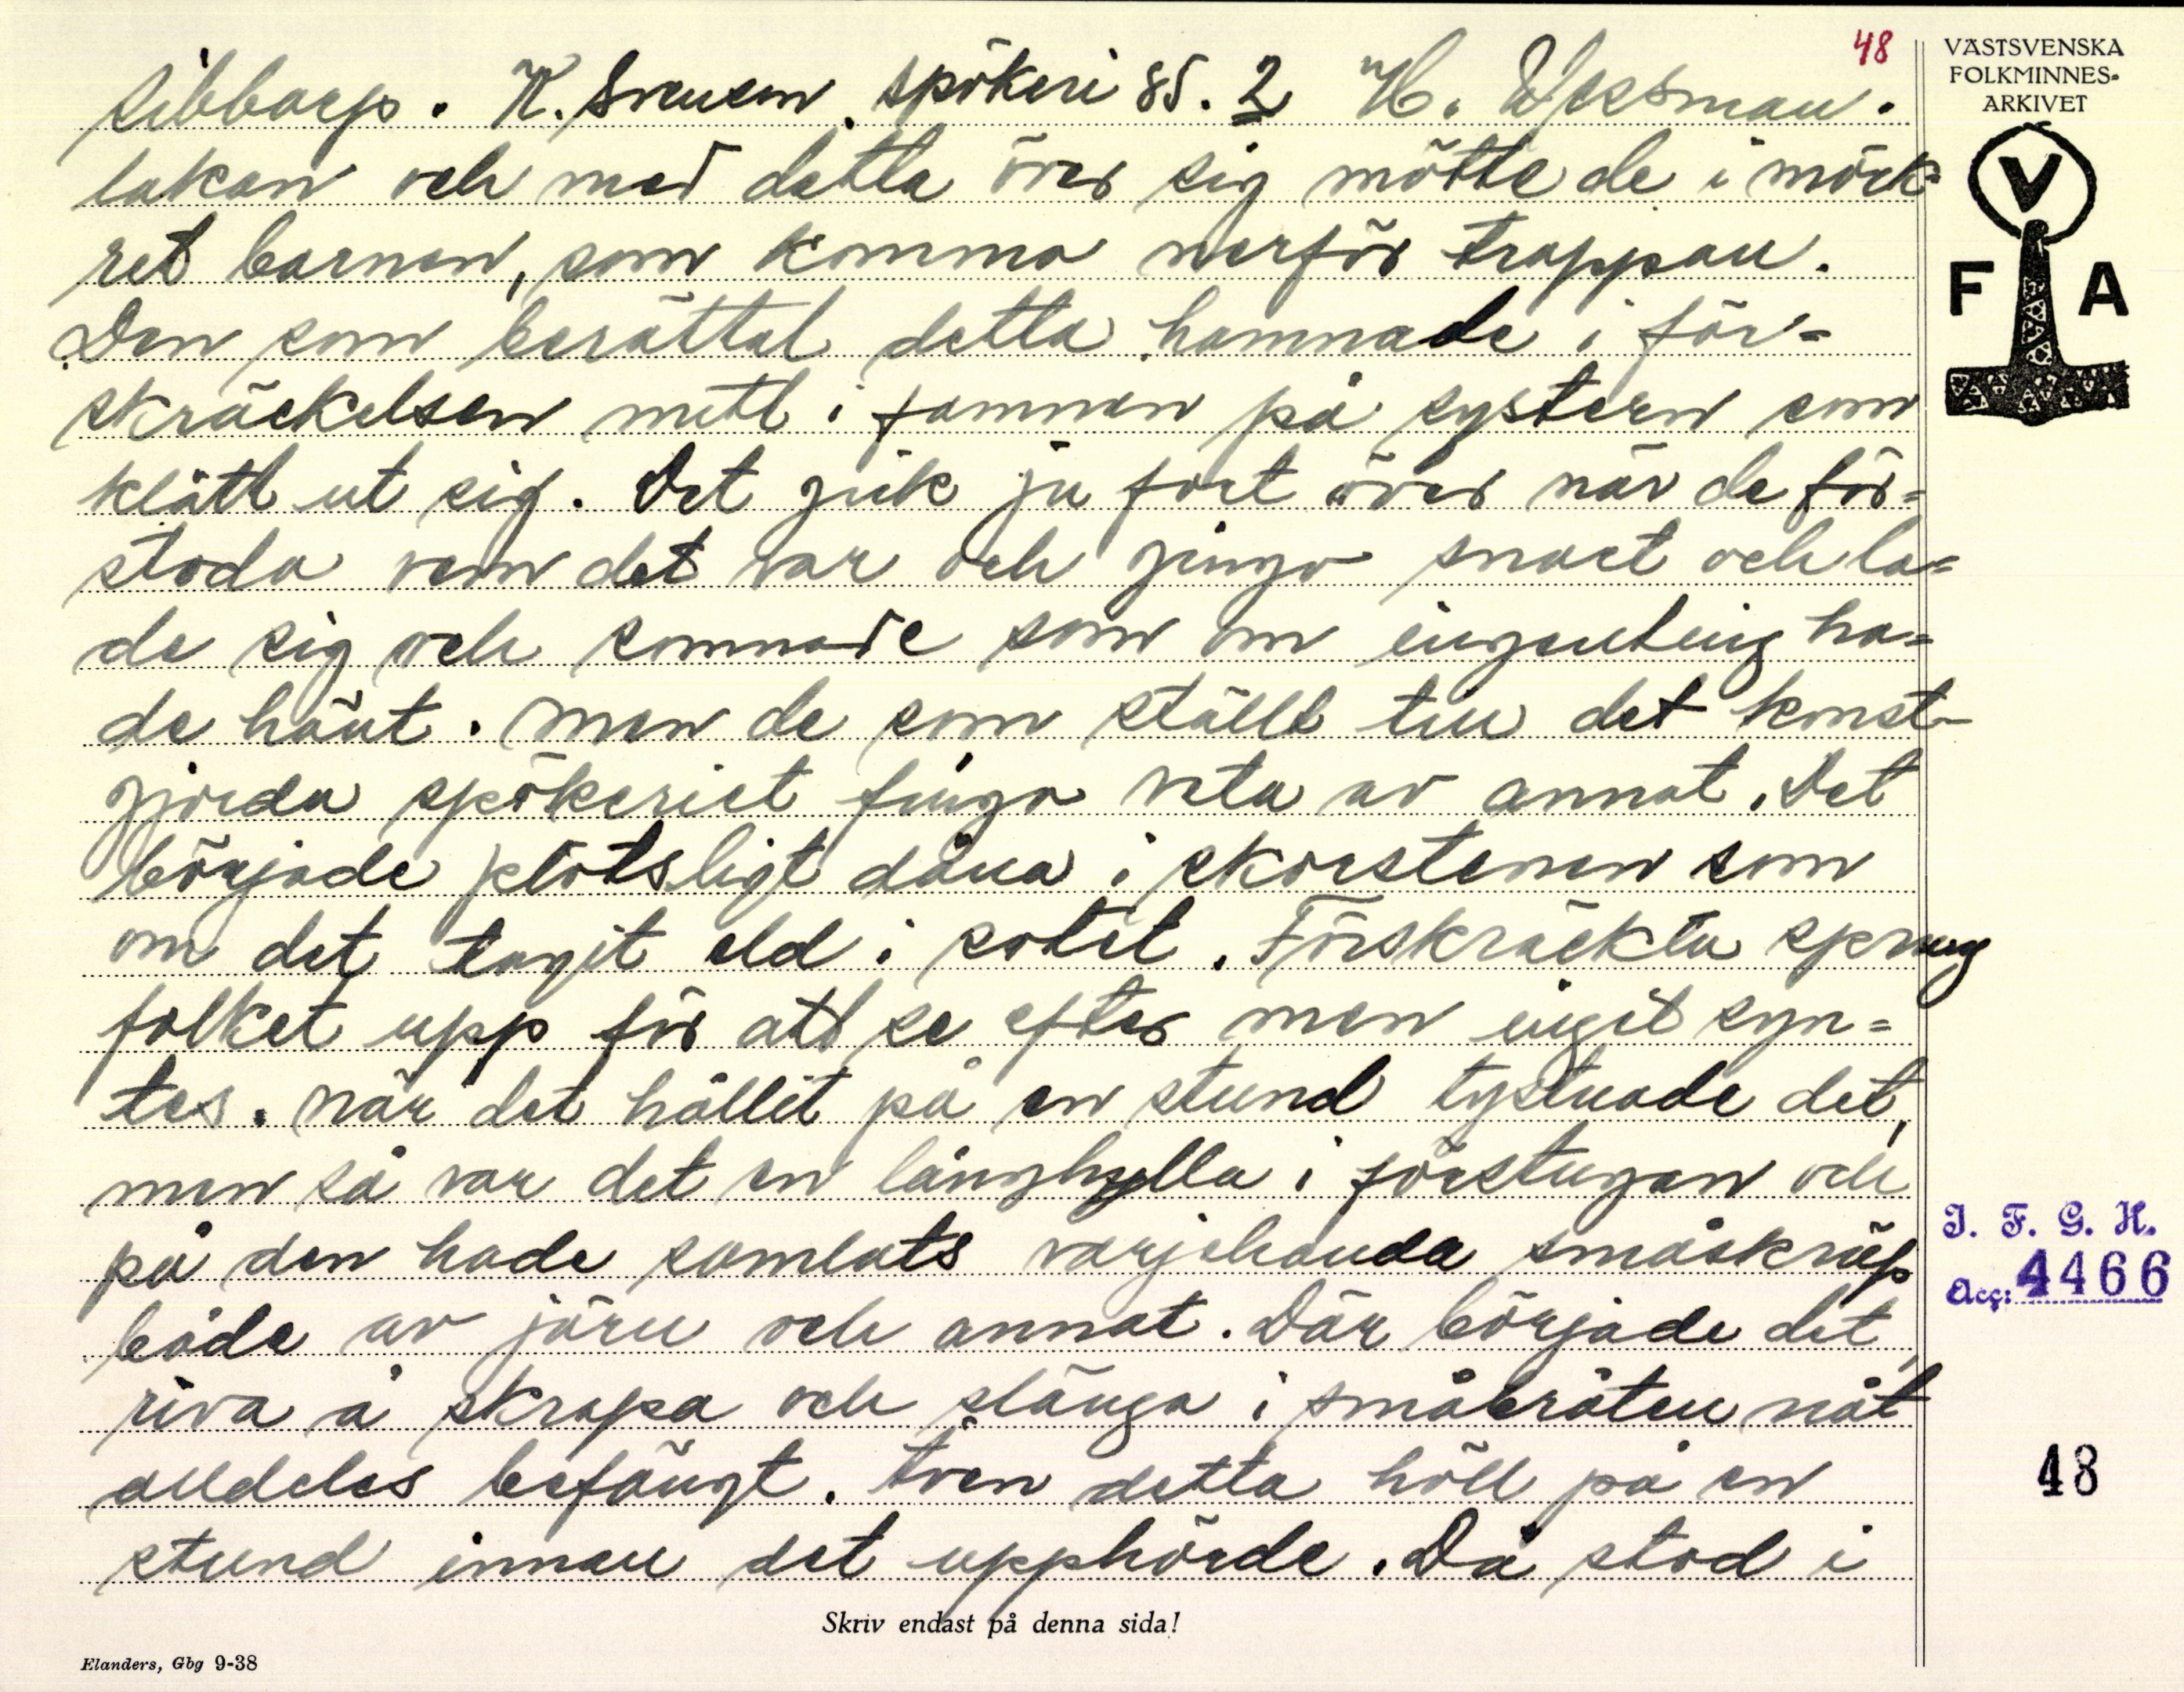 48
Sibbarp. K. Svensson. Spökeri 85. 2 H. Wessman.
lakan och med detta över sig mötte de i mörk-
ret barnen, som komma nerför trappan.
Den som berättat detta hamnade i för=
skräckelsen mitt i famnen på systern som
klätt ut sig. Det gick ju fort över när de för=
stodo vem det var och gingo snart och la=
de sig och somnade som om ingenting ha=
de hänt. Men de som ställt till det konst-
gjorda spökeriet fingo veta av annat. Det
började plötsligt dåna i skorstenen som
om det tagit eld i sotet. Förskräckta sprang
folket upp för att se efter men inget syn=
tes. När det hållit på en stund tystnade det,
men så var det en långhylla i förstugan och
på den hade samlats varjehanda småskräp
både av järn och annat. Där började det
riva å skrapa och slänga i småkråten nåt
alldeles befängt. Även detta höll på en
stund innan det upphörde. Då stod i
Skriv endast på denna sida!
Elanders, Gbg 9-38
VÄSTSVENSKA
FOLKMINNES-
ARKIVET
V
F A
I. F. G. H.
Acc: 4466
48